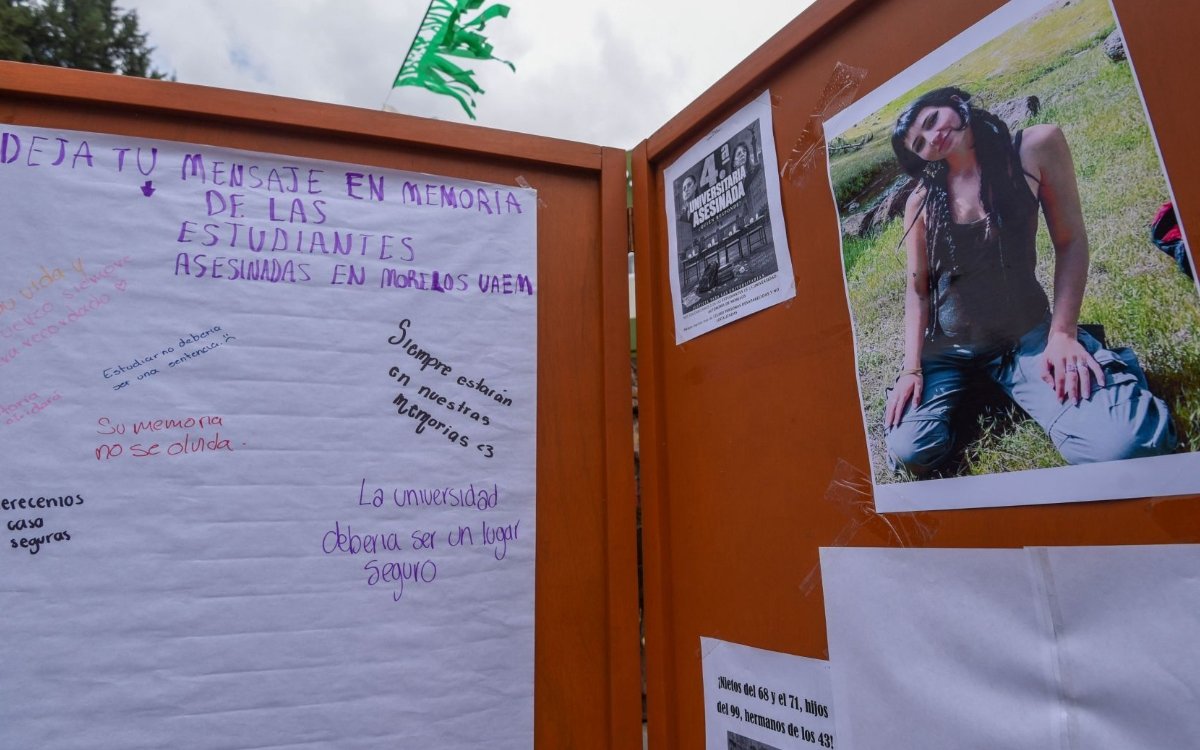 DEJA TU MENSAJE EN MEMORIA
DE LAS
ESTUDIANTES
ASESINADAS EN MORELOS UAEM
vida y
Estudiar no deberia
ser una sentencia. :(
Siempre estarán
en nuestras
memorias <3
Su memoria
no se olvida.
La universidad
deberia ser un lugar
seguro
casa
seguras
4.ª
UNIVERSITARIA
ASESINADA
¡Nietos del 68 y el 71, hijos
del 99, hermanos de los 43!